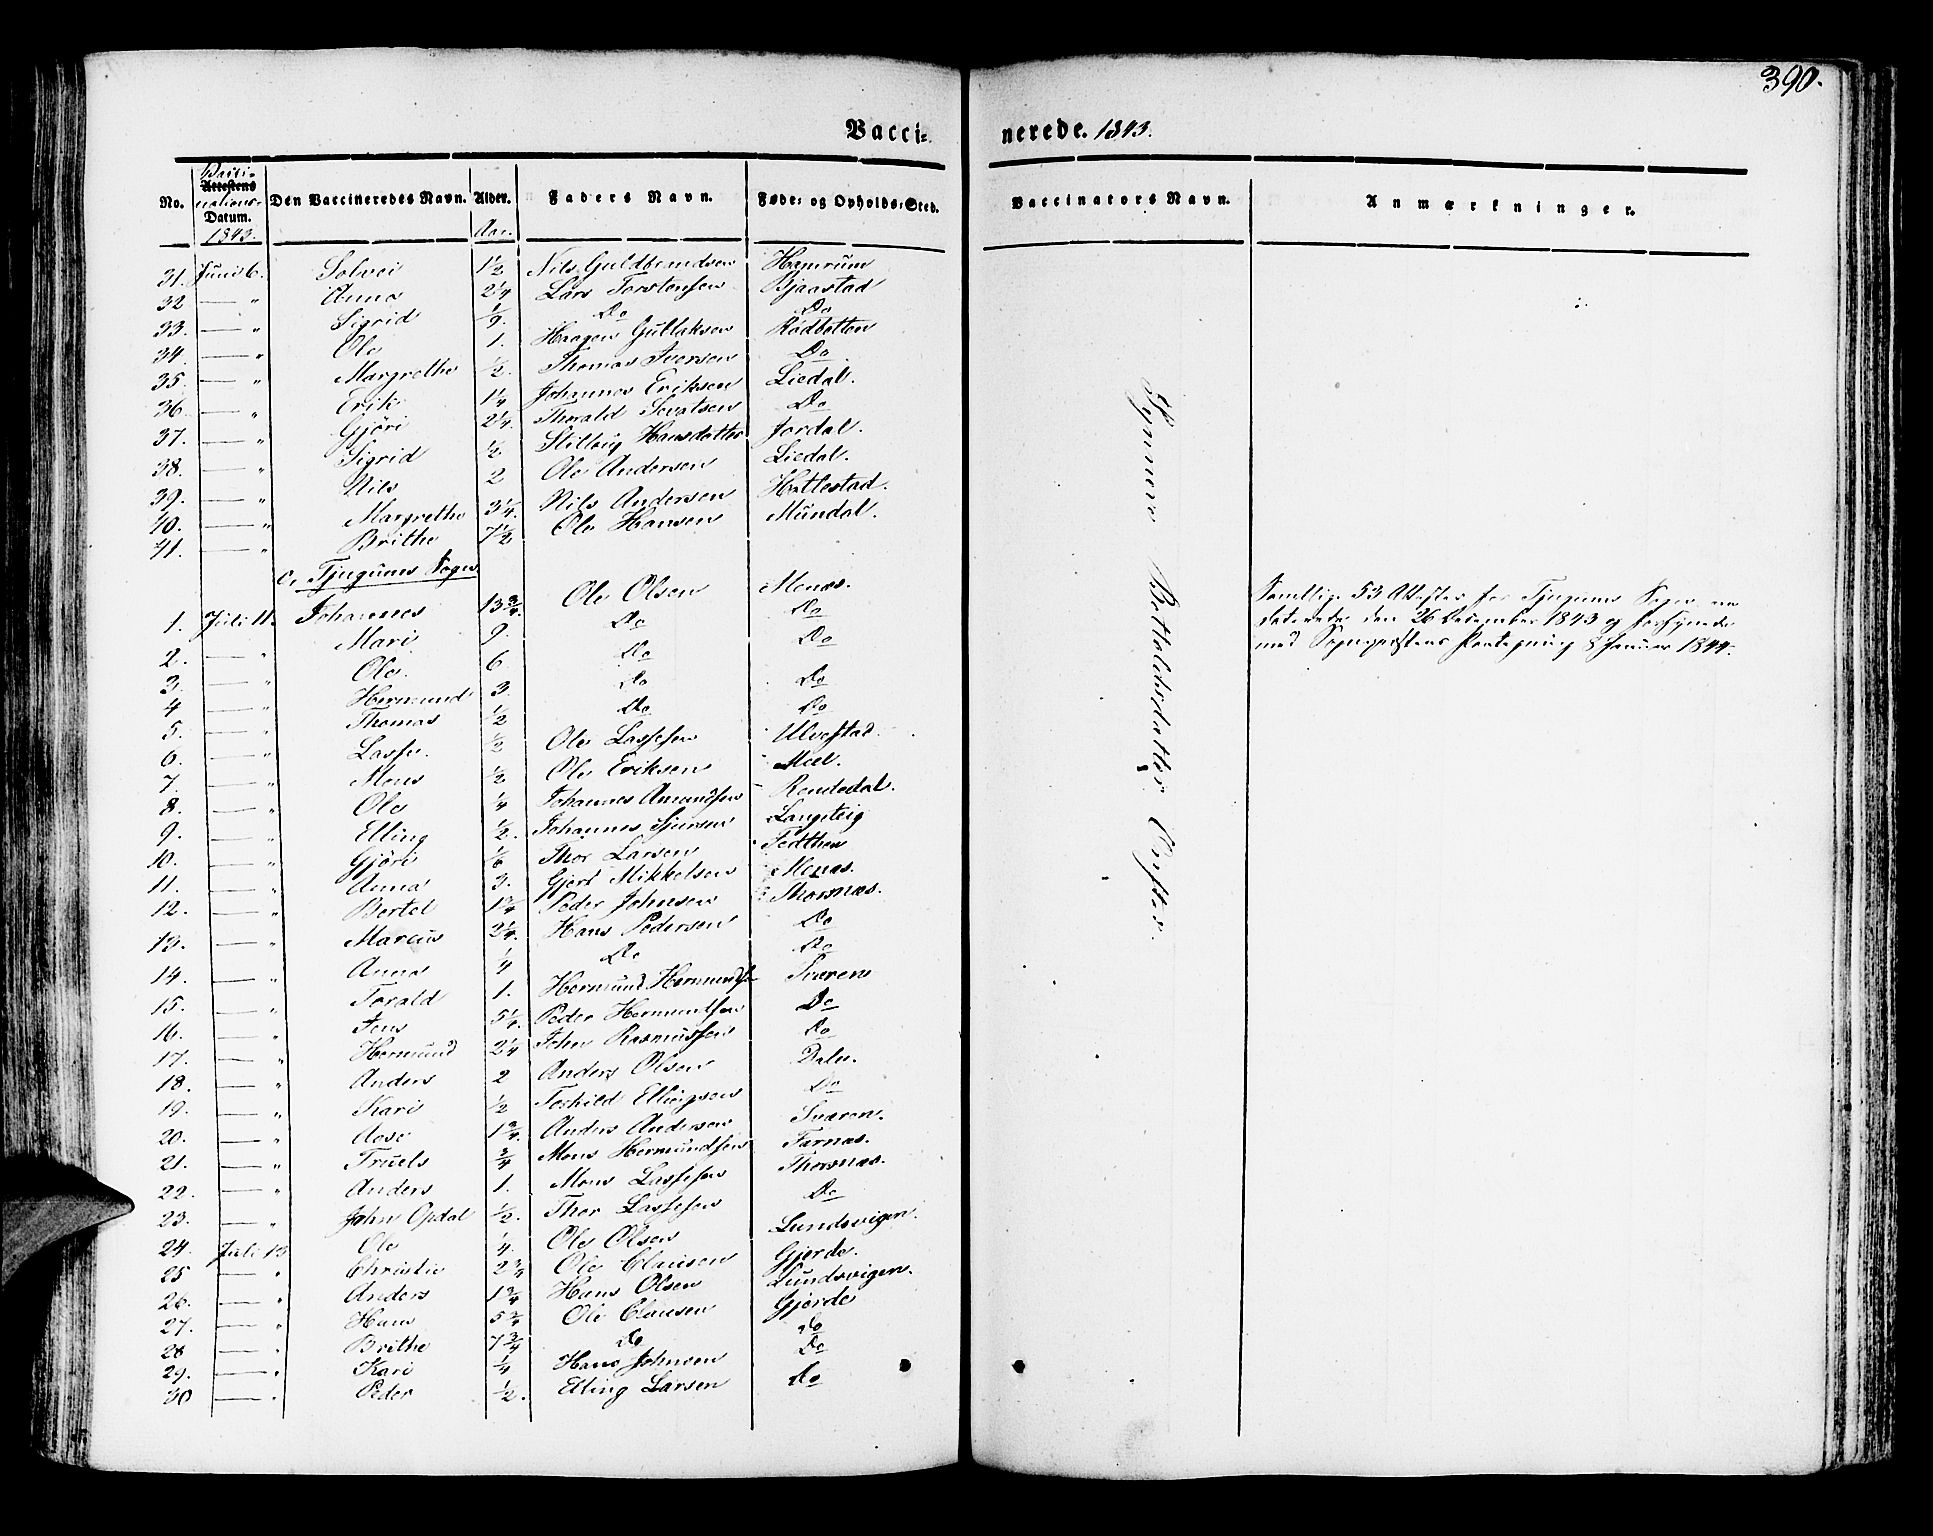 390.
Vacci- nerede. 1843.
No. Vacci- Attestens nations- Datum. 1843. Den Vaccineredes Navn. Alder. Aar. Faders Navn. Føde- og Opholds-Sted. Vaccinators Navn. Anmærkninger.
31. Juni 6. Solvei 1 1/2 Nils Guldbrandsen Hamrum
32 — " Anna 2 1/4 Lars Torstensen Bjaastad
33. — " Sigrid 1/9. Do Do
34. — " Ole 1. Haagen Gullaksen Rødbotten
35. — " Margrethe 1/2. Thomas Iversen Do
36. — " Erik 1 1/4 Johannes Eriksen Liedal.
37. — " Gjöri 2 1/4. Thorald Sevatsen Do
38. — " Sigrid 1/2. Hansdatter Jordal.
39. — " Nils 2 Ole Andersen Liedal.
40. — " Margrethe 3 1/4. Nils Andersen Hatlestad.
41. — " Brithe 7 1/2 Ole Hansen Mundal.
c, Tjugums Sogn
1. Juli 11. Johannes 13 3/4. Ole Olsen Menæs.
2. — " Mari 9. Do Do
3. — " Ole. 6. Do Do
4 — " Hermund 3. Do Do
5. — " Thomas 1/2 Do Do
6. — " Lasse. 1/2 Ole Lassesen Ulvestad.
7. — " Mons 1/2 Ole Eriksen Mæl.
8. — " Ole 1/4 Johannes Amundsen Rendedal.
9. — " Elling 1/2. Johannes Sjursen Langteig
10. — " Gjöri 1/6 Thor Larsen Tedthun
11. — " Anna 3. Gjert Mikkelsen Menæs.
12. — " Bertel 1 3/4 Peder Johnsen Thorsnæs.
13. — " Marcus 2 1/4. Hans Pedersen Do
14. — " Anna 1/4 Do Do
15. — " Torald 1. Hermund Hermundsen Sværen
16. — " Jens 5 1/4. Peder Hermundsen Do
17. — " Hermund 2 1/4 John Rasmussen Do
18. — " Anders 2 Anders Olsen Dale.
19. — " Kari 1/2 Torkild Ellingsen Do
20. — " Aase 1 3/4. Anders Andersen Sværen.
21. — " Truels 3/4 Mons Hermundsen Farnæs.
22. — " Anders 1. Mons Lassesen Thorsnæs.
23. — " John Opdal 1/2. Thor Lassesen Do
24. Juli 13 Ole 1/4. Ole Olsen Lundsvigen.
25 — " Christie 2 3/4 Ole Clausen Gjerde.
26. — " Anders 1 3/4 Hans Olsen Lundsvigen.
27. — " Hans 5 3/4 Ole Clausen Gjerde
28 — " Brithe 7 3/4 Do Do
29. — " Kari 1/4 Hans Johnsen Do
30 — " Peder 1/2. Elling Larsen Do
Synneve
Samtlige 53 Attester for Tjugums Sogn ere
daterede den 26 December 1843 og forsynede
med Sognepræstens Paategning 8 Januar 1844.